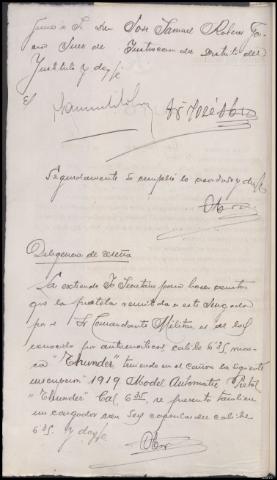 firma S. Sª Don José Samuel Roberes
Juez de Instruccion de
Instituto y doy fe
Seguidamente se cumplió lo mandado y doy fe
Diligencia de reseña
La extiendo Yo Secretario para hacer constar
que la pistola remitida a este Juzgado
por el Sr Comandante Militar es de las
conocidas por automaticas calibre 6'35, mar-
ca "Thunder" teniendo en el cañon la siguiente
inscripcion "1919 Model Automatic Pistol
"Thunder" Cal. 6'35, se presenta tambien
un cargador con seis capsulas del calibre
6'35. y doy fe